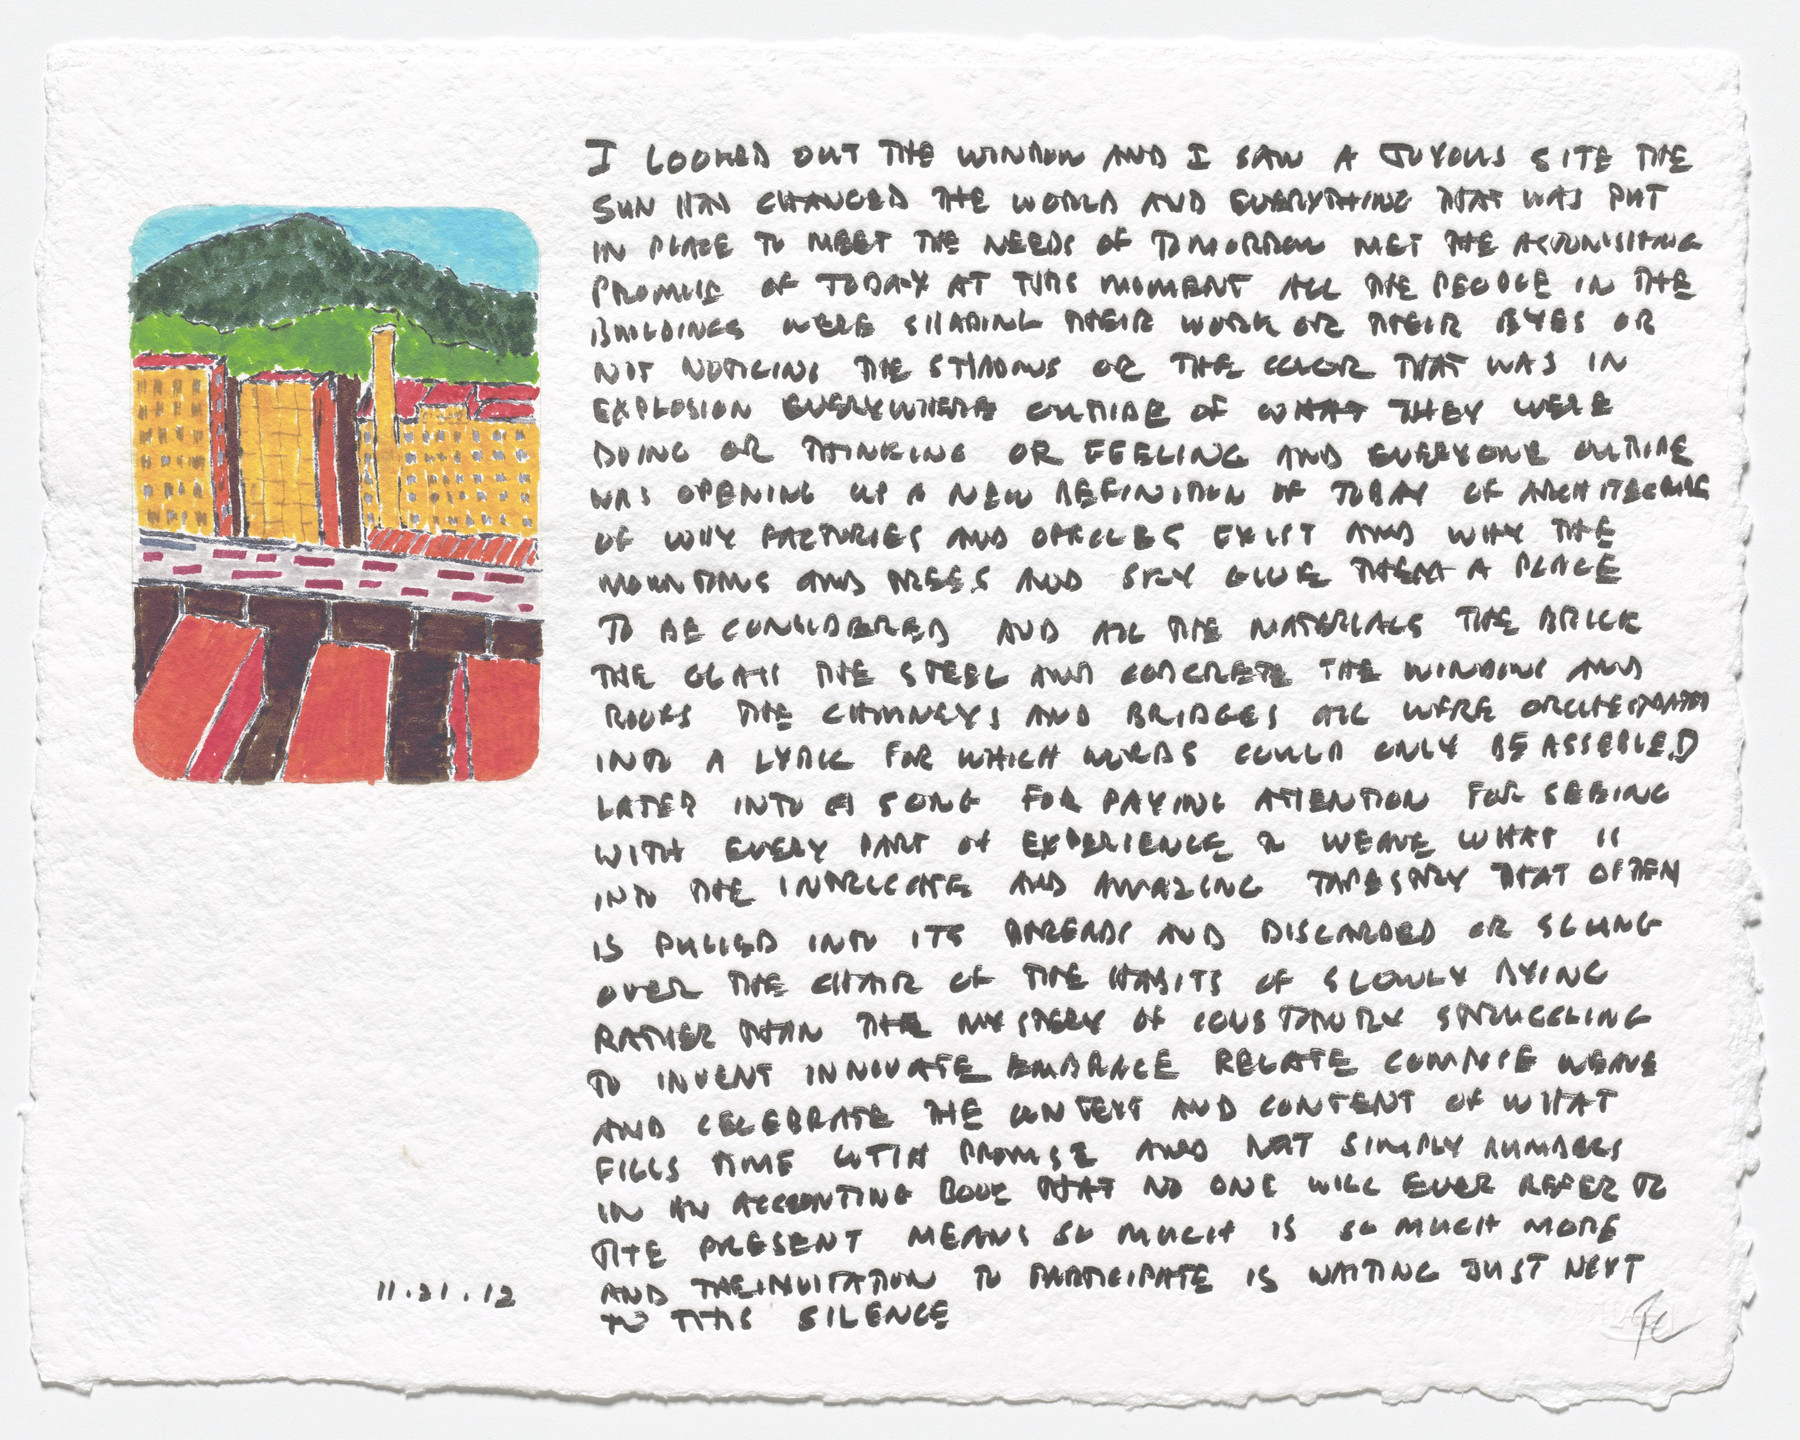 I LOOKED OUT THE WINDOW AND I SAW A JOYOUS SITE THE
SUN HAD CHANGED THE WORLD AND EVERYTHING THAT WAS PUT
IN PLACE TO MEET THE NEEDS OF TOMORROW MET THE ASTONISHING
PROMISE OF TODAY AT THIS MOMENT ALL THE PEOPLE IN THE
BUILDINGS WERE SHADING THEIR WORK OR THEIR EYES OR
NOT NOTICING THE SHADOWS OR THE COLOR THAT WAS IN
EXPLOSION EVERYWHERE OUTSIDE OF WHAT THEY WERE
DOING OR THINKING OR FEELING AND EVERYONE OUTSIDE
WAS OPENING UP A NEW DEFINITION OF TODAY OF ARCHITECTURE
OF WHY FACTORIES AND OFFICES EXIST AND WHY THE
MOUNTAINS AND TREES AND SKY GIVE THEM A PLACE
TO BE CONSIDERED AND ALL THE MATERIALS THE BRICK
THE GLASS THE STEEL AND CONCRETE THE WINDOWS AND
ROOFS THE CHIMNEYS AND BRIDGES ALL WERE ORCHESTRATED
INTO A LYRIC FOR WHICH WORDS COULD ONLY BE ASSEBLED
LATER INTO A SONG FOR PAYING ATTENTION FOR SEEING
WITH EVERY PART OF EXPERIENCE TO WEAVE WHAT IS
INTO THE INTRICATE AND AMAZING TAPESTRY THAT OFTEN
IS PULLED INTO ITS THREADS AND DISCARDED OR SLUNG
OVER THE CHAIR OF THE HABITS OF SLOWLY DYING
RATHER THAN THE MYSTERY OF CONSTANTLY STRUGGLING
TO INVENT INNOVATE EMBRACE RELATE COMPOSE WEAVE
AND CELEBRATE THE CONTEXT AND CONTENT OF WHAT
FILLS TIME WITH PROMISE AND NOT SIMPLY NUMBERS
IN AN ACCOUNTING BOOK THAT NO ONE WILL EVER REFER TO
THE PRESENT MEANS SO MUCH IS SO MUCH MORE
AND THE INVITATION TO PARTICIPATE IS WAITING JUST NEXT
TO THIS SILENCE
11.21.12